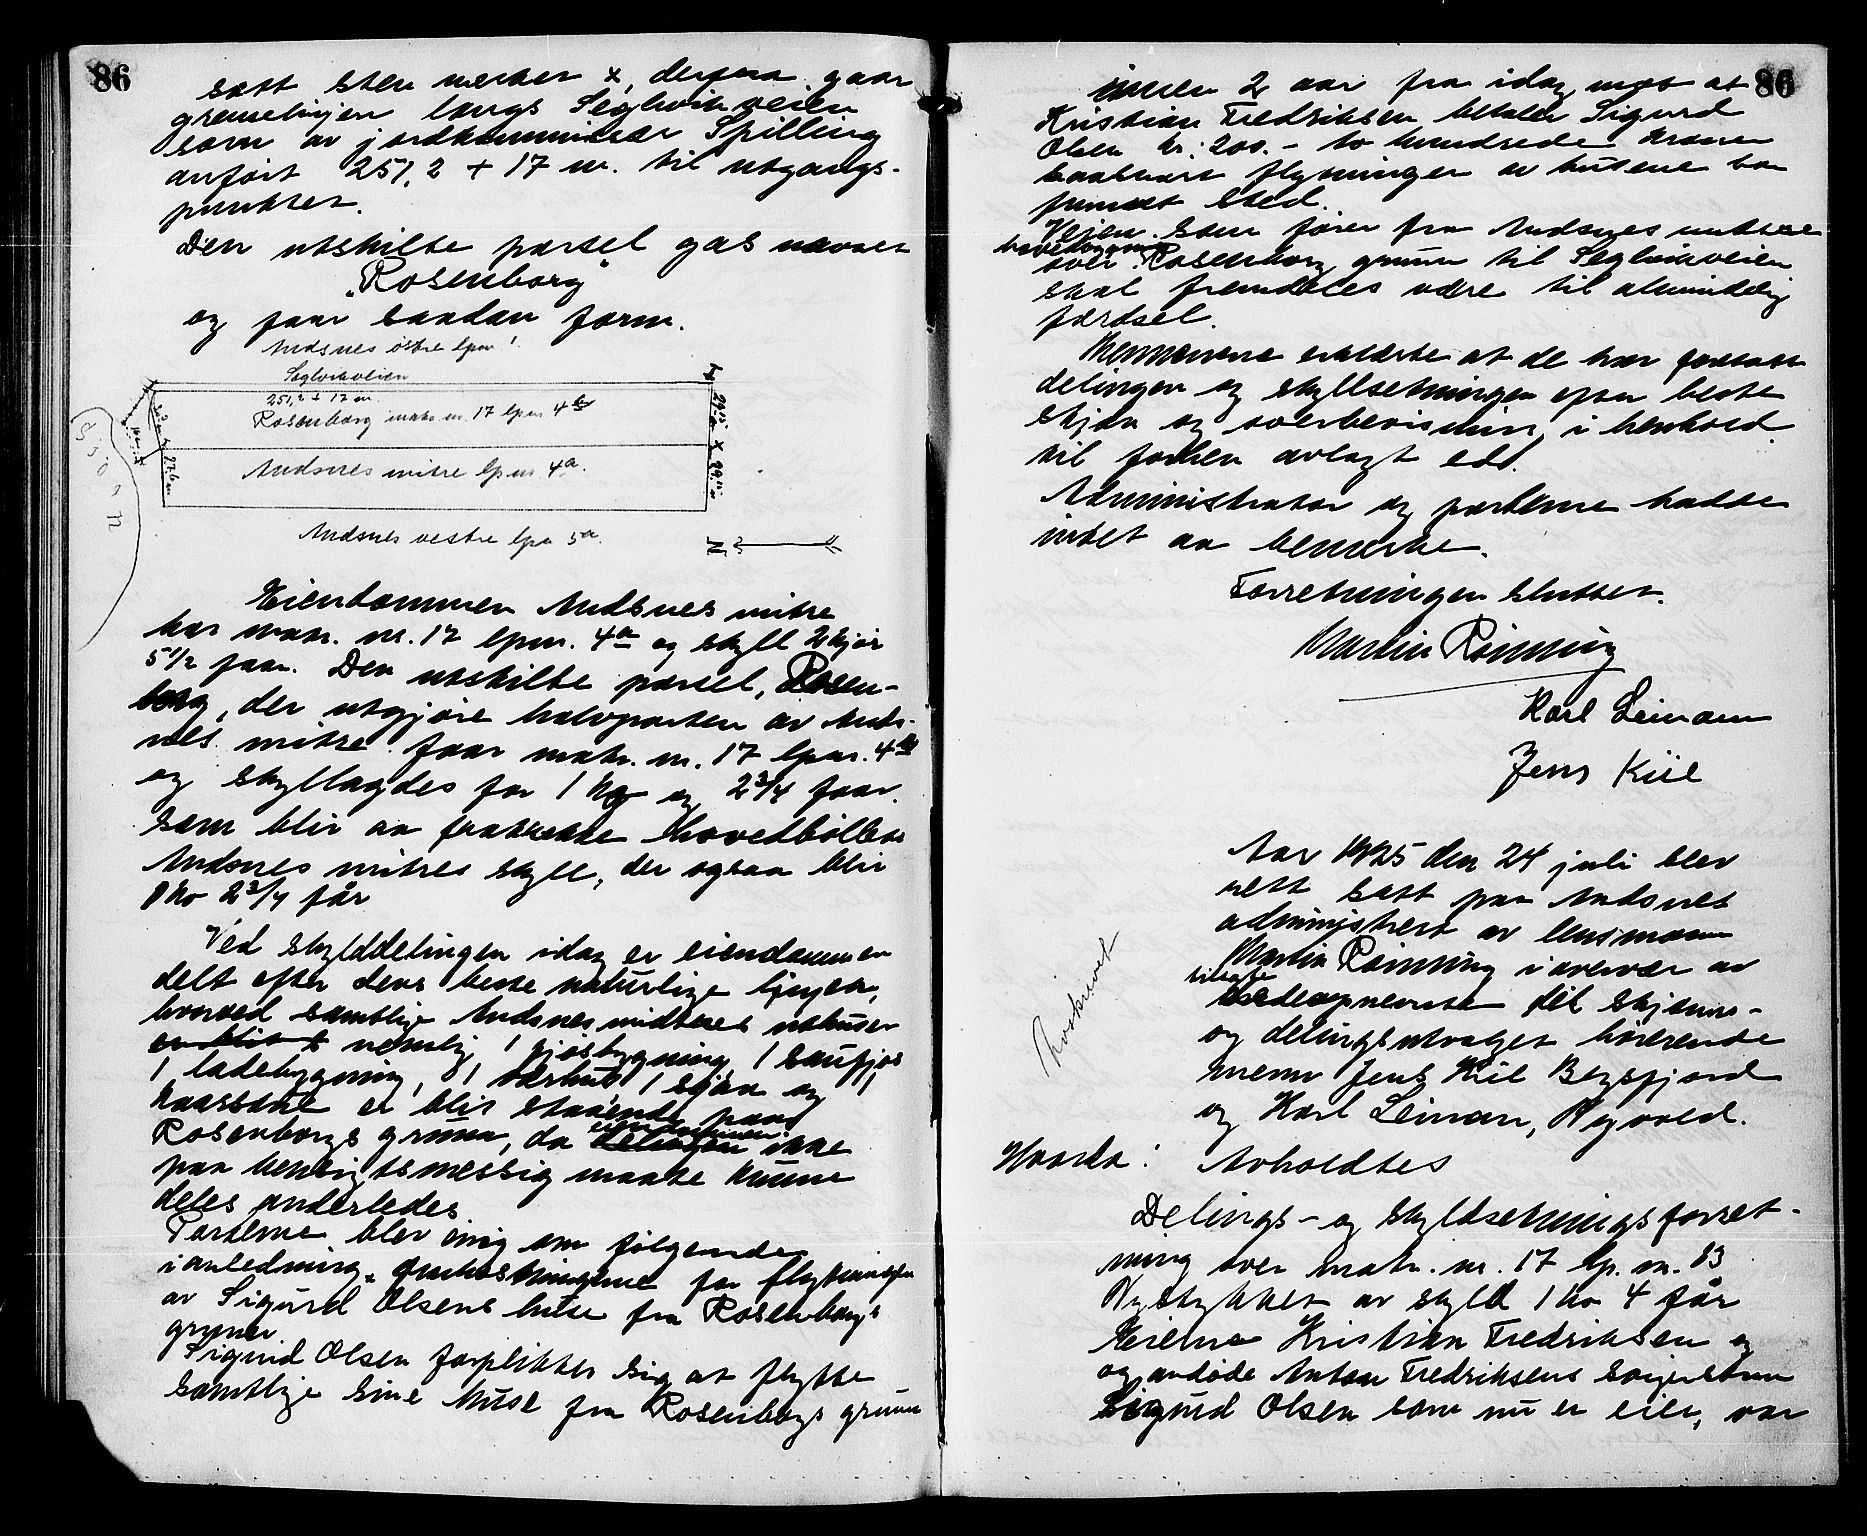 86
satt sten merket x, derfra gaar
grenselinjen langs Seglvikveien
som av jordkommisær Spilling
anført 251,2 + 17 m. til utgangs-
punktet.
Den utskilte parsel gas navnet
"Rosenborg"
og faar saadan form.
Andsnes östre lpnr 1.
Seglvikveien
251,2 + 17 m.
Rosenborg matr. nr. 17 lpnr. 4b
Andsnes mitre lpnr. 4a.
Andsnes vestre lpnr 5a.
Sjöen
N
Eiendommen Andsnes mitre
har matr. nr. 17 lpnr. 4a og skyll 2 kjør
5 1/2 faar. Den utskilte parsel, Rosen-
borg, der utgjøre halvparten av Ands-
nes mitre faar matr. nr. 17 lpnr. 4b
og skyllagdes for 1 ko og 2 3/4 faar.
som blir at fratrekke Hovedbøllets
Andsnes mitres skyll, der ogsaa blir
1 ko 2 3/4 får
Ved skylddelingen idag er eiendommen
delt efter dens beste naturlige linjer,
hvorved samtlige Andsnes midtres uthuser
nemlig 1 fjøsbygning, 1 saufjøs
1 ladebygning, 1 størhus 1 sjaa og
naarstøe er blit staaende paa
Rosenborgs grunn, da eiendommen ikke
paa hensigtsmessig maate kunne
deles anderledes
Parterne blev enig om følgende
i anledning omkostningerne for flytningen
av Sigurd Olsens huse fra Rosenborgs
grunn.
Sigurd Olsen forplikter sig at flytte
samtlige sine huse fra Rosenborgs grunn
86
innen 2 aar fra idag mot at
Kristian Fredriksen betaler Sigurd
Olsen kr: 200.- to hundrede kroner
saasnart flytningen av husene har
funnet sted.
Veien som fører fra Andsnes midtre
hovedbygning
over Rosenborg grunn til Seglvikveien
skal fremdeles være til almindelig
færdsel.
Mennerne erklærte at de har foretatt
delingen og skyllsetningen efter beste
skjøn og overbevisning, i henhold
til forhen avlagt edd.
Administrator og parterne hadde
intet at bemerke.
Forretningen sluttet.
Martin Rönning
Karl Leiman
Jens Kiil
Aar 1925 den 24 juli blev
rett satt paa Andsnes
administrert av lensmann
Martin Rönning i overvær av
tilkalte
til skjønns-
og delingsutvalget hørerende
menn Jens Kiil Bergsfjord
og Karl Leiman, Nyvold.
Hvorda: Avholdtes
Delings- og skyldsetningsforret-
ning over matr. nr. 17 lp. nr. 13
Nystykket av skyld 1 ko 4 får
Eierne Kristian Fredriksen og
og avdøde Anton Fredriksens svigersønn
Sigurd Olsen som nu er eier, var